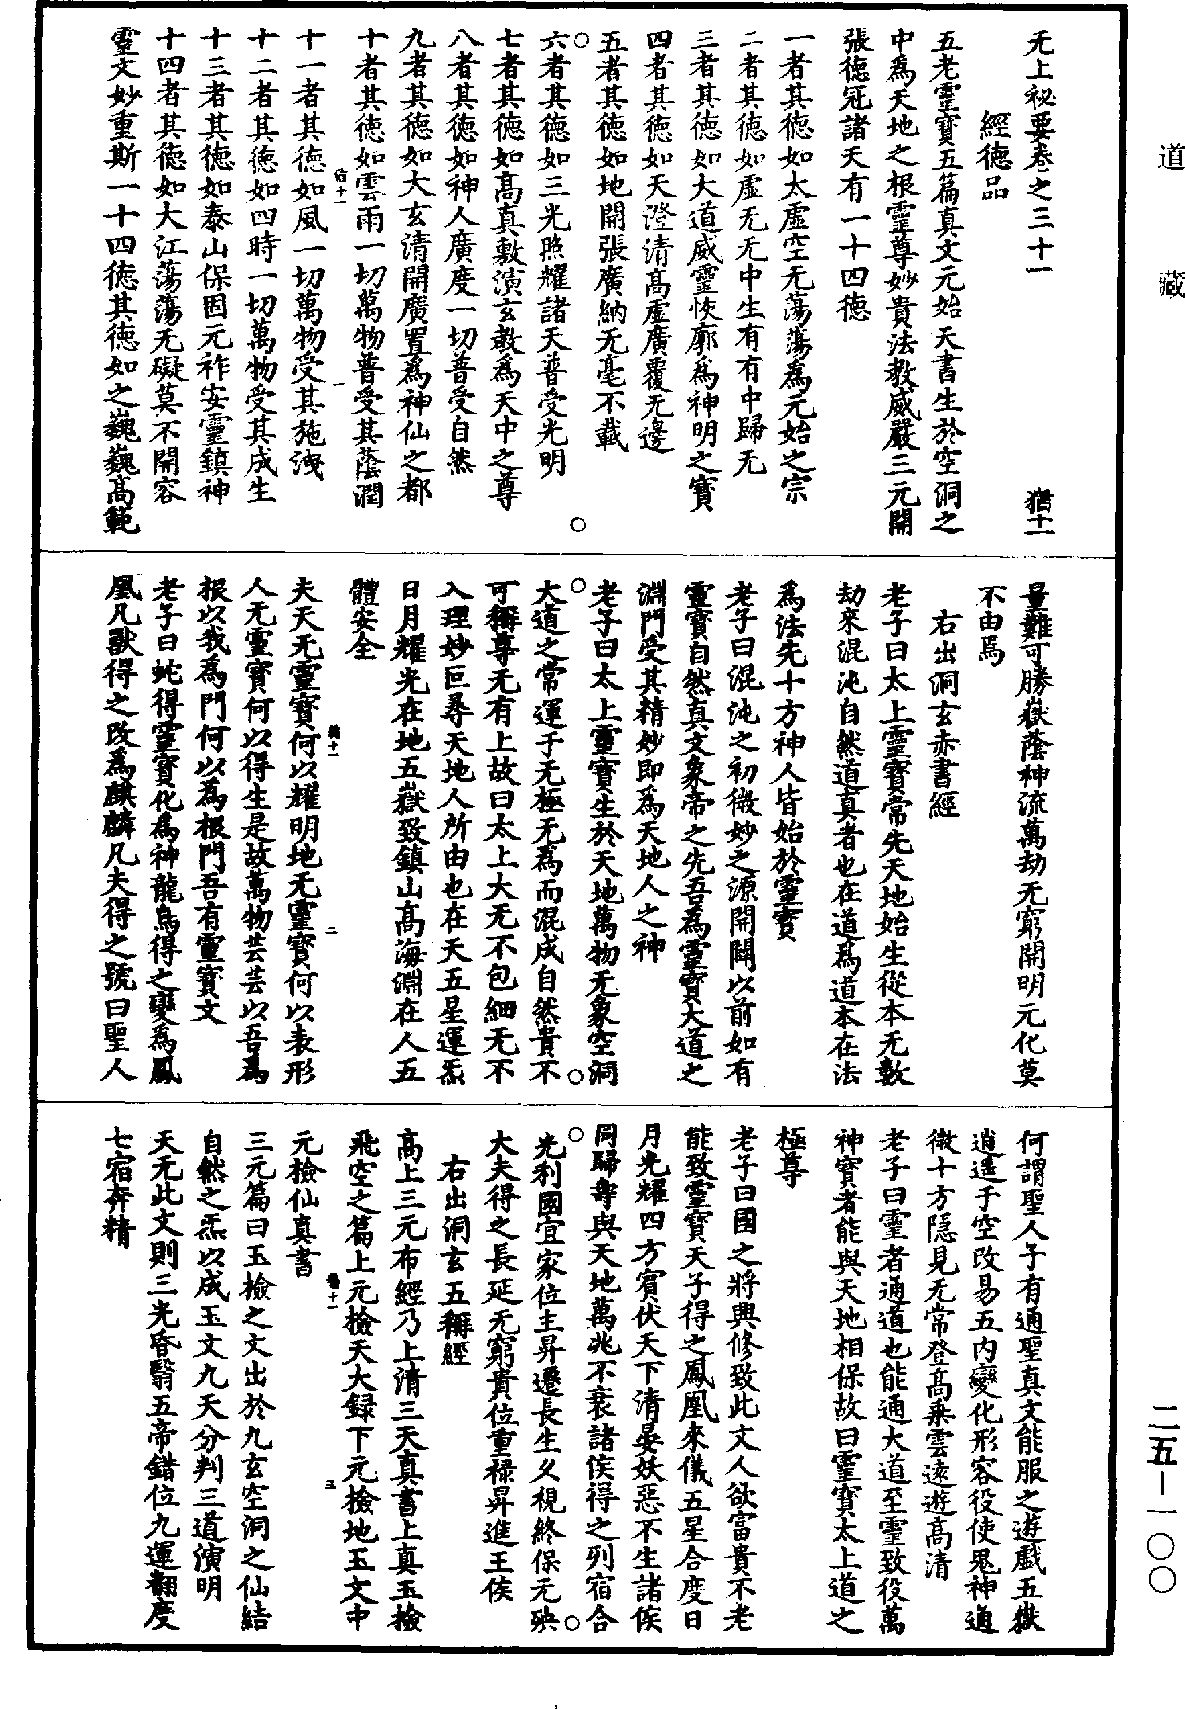 道藏
无上祕要卷之三十一 猶十一
經德品
五老靈寶五篇真文元始天書生於空洞之
中爲天地之根靈尊妙貴法教威嚴三元開
張德冠諸天有一十四德
一者其德如太虛空无蕩蕩爲元始之宗
二者其德如虛无无中生有有中歸无
三者其德如大道威靈恢廓爲神明之寶
四者其德如天澄清高虛廣覆无邊
五者其德如地開張廣納无毫不載
六者其德如三光照耀諸天普受光明
七者其德如高真敷演玄教爲天中之尊
八者其德如神人廣度一切普受自然
九者其德如大玄清開廣置爲神仙之都
十者其德如雲雨一切萬物普受其蔭潤
猶十一 一
十一者其德如風一切萬物受其施洩
十二者其德如四時一切萬物受其成生
十三者其德如泰山保固元祚安靈鎮神
十四者其德如大江蕩蕩无礙莫不開容
靈文妙重斯一十四德其德如之巍巍高範
量難可勝嶽蔭神流萬劫无窮開明元化莫
不由焉
右出洞玄赤書經
老子曰太上靈寶常先天地始生從本无數
劫來混沌自然道真者也在道爲道本在法
爲法先十方神人皆始於靈寶
老子曰混沌之初微妙之源開闢以前如有
靈寶自然真文象帝之先吾爲靈寶大道之
淵門受其精妙即爲天地人之神
老子曰太上靈寶生於天地萬物无象空洞
大道之常運于无極无爲而混成自然貴不
可稱尊无有上故曰太上大无不包細无不
入理妙叵尋天地人所由也在天五星運炁
日月耀光在地五嶽致鎮山高海淵在人五
體安全
猶十一 二
夫天无靈寶何以耀明地无靈寶何以表形
人无靈寶何以得生是故萬物芸芸以吾爲
根以我爲門何以爲根門吾有靈寶文
老子曰蛇得靈寶化爲神龍鳥得之變爲鳳
凰凡獸得之改爲麒麟凡夫得之號曰聖人
何謂聖人子有通聖真文能服之遊戲五嶽
逍遥于空改易五内變化形容役使鬼神通
徹十方隱見无常登高乘雲遠遊高清
老子曰靈者通道也能通大道至靈致役萬
神寶者能與天地相保故曰靈寶太上道之
極尊
老子曰國之將興修致此文人欲富貴不老
能致靈寶天子得之鳳凰來儀五星合度日
月光耀四方賓伏天下清晏妖惡不生諸侯
同歸壽與天地萬兆不衰諸侯得之列宿合
光利國宜家位主昇遷長生久視終保无殃
大夫得之長延无窮貴位重禄昇進王侯
右出洞玄五稱經
高上三元布經乃上清三天真書上真玉檢
飛空之篇上元檢天大録下元檢地玉文中
元檢仙真書
猶十一 三
三元篇曰玉檢之文出於九玄空洞之仙結
自然之炁以成玉文九天分判三道演明
天无此文則三光昏翳五帝錯位九運翻度
七宿奔精
二五—一〇〇